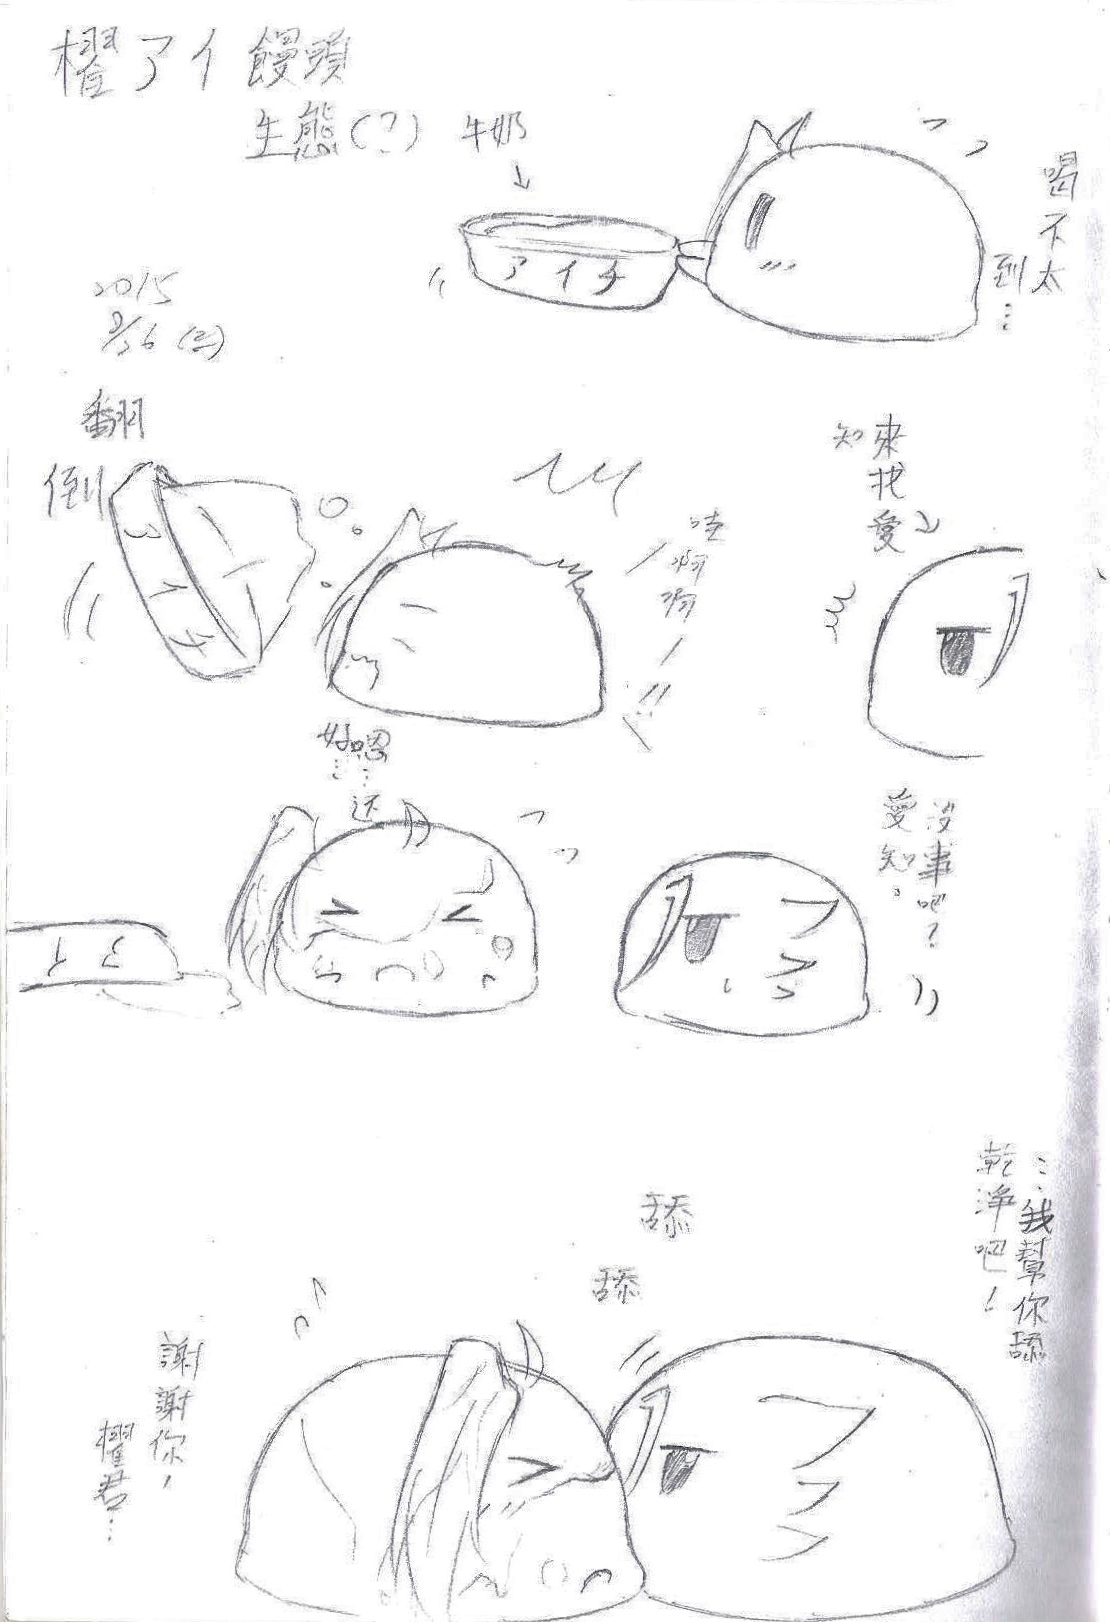 櫂アイ饅頭
生態(?)
牛奶
喝不太
到…
アイチ
2015
翻
倒
アイチ
哇啊啊!!
來找愛
知
嗯…还
好…
沒事吧?
愛知。
…我幫你舔
乾淨吧!
舔
舔
謝謝你,
櫂君…